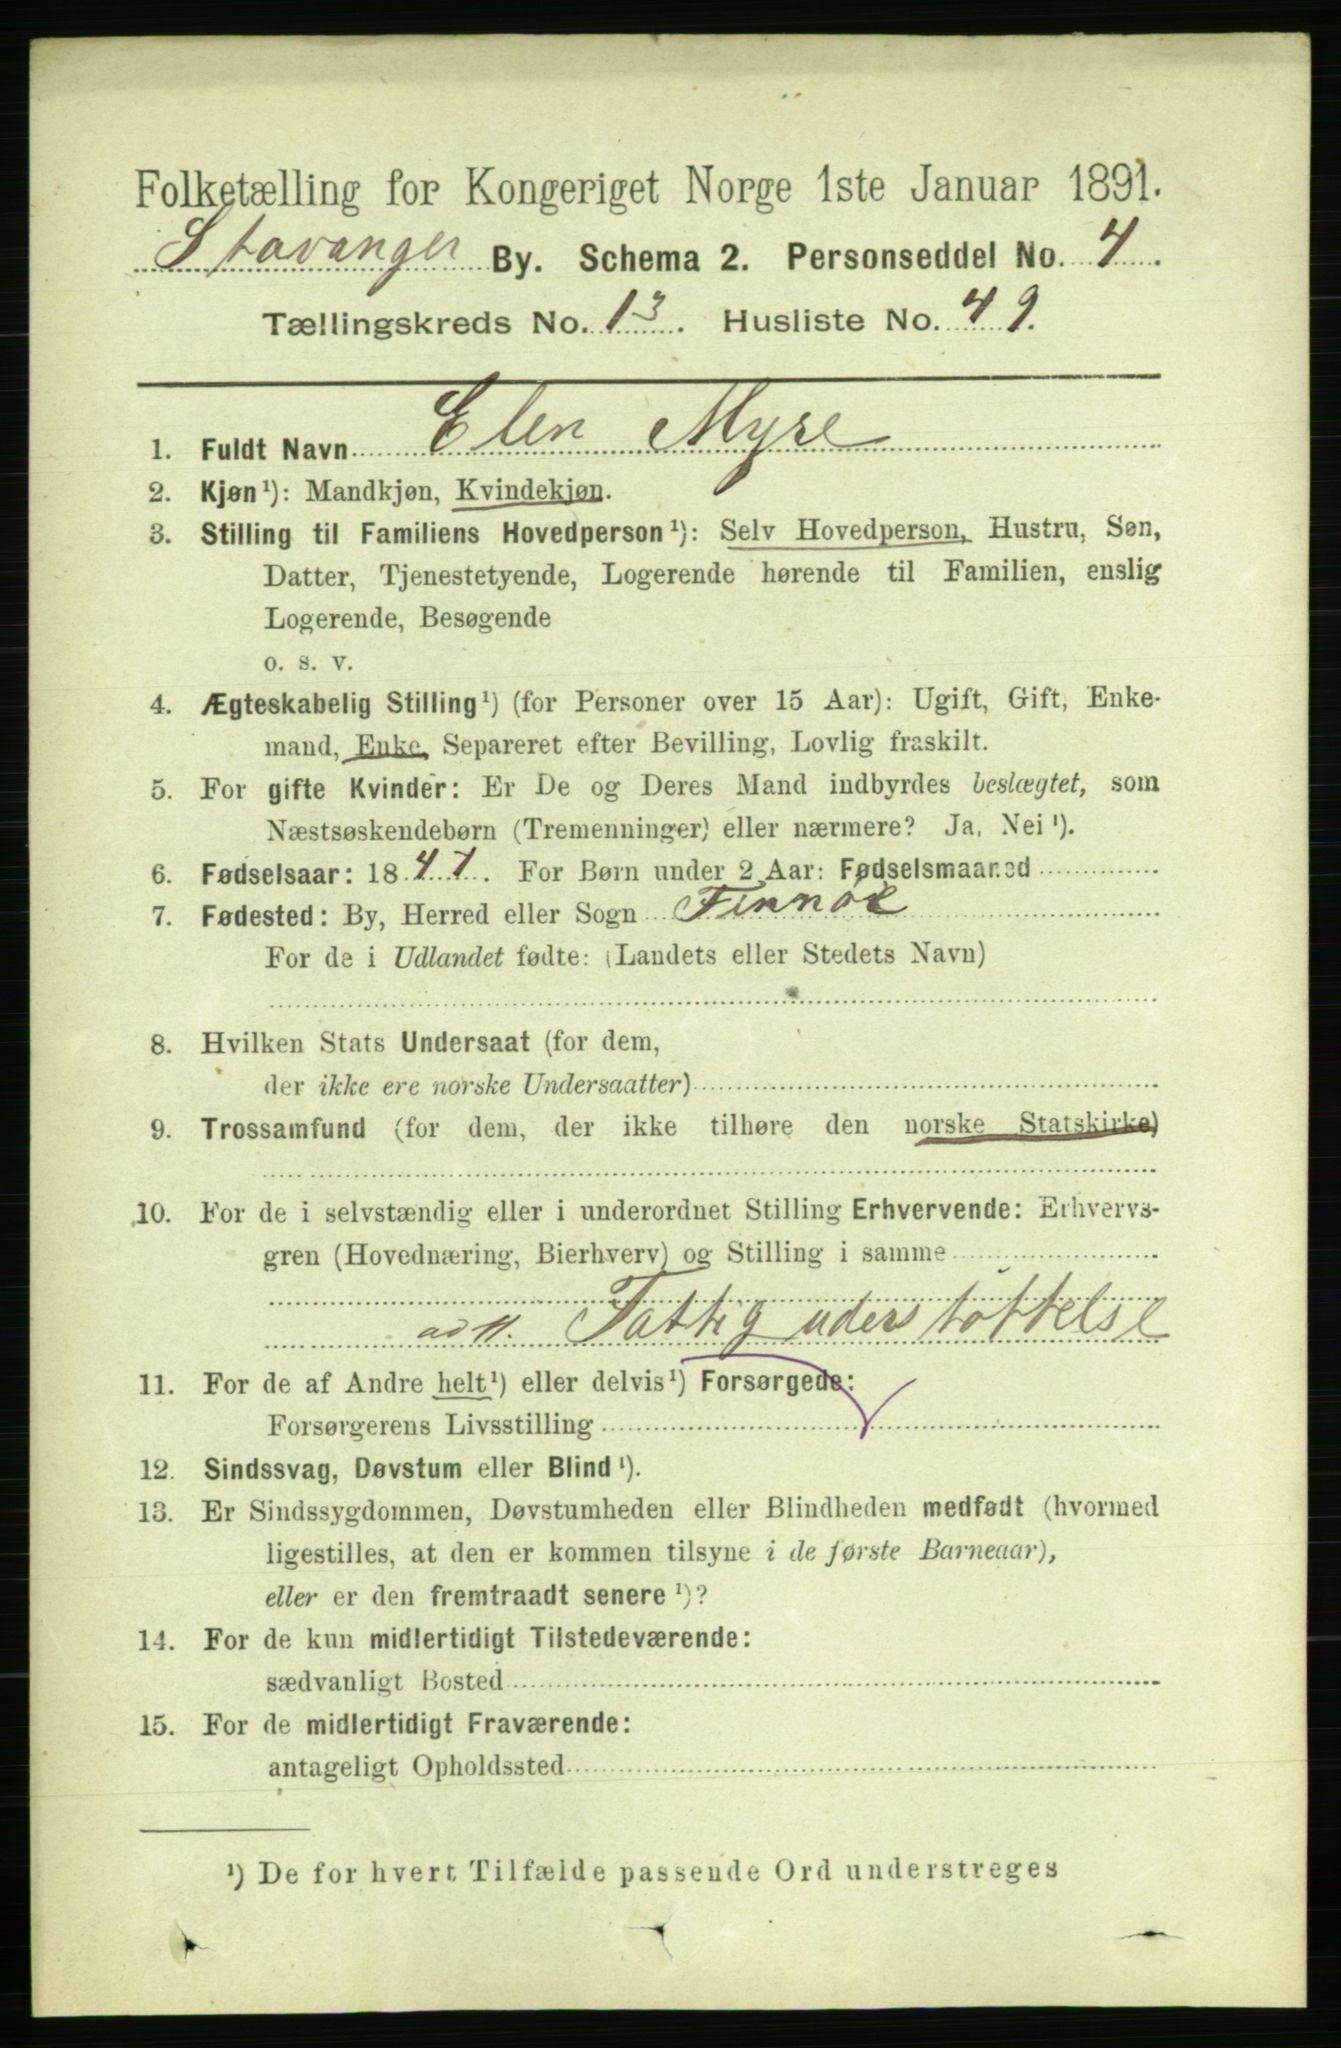 Folketælling for Kongeriget Norge 1ste Januar 1891.
Stavanger By. Schema 2. Personseddel No. 4.
Tællingskreds No. 13. Husliste No. 49.
1. Fuldt Navn Elen Myre
2. Kjøn ¹): Mandkjøn, Kvindekjøn.
3. Stilling til Familiens Hovedperson ¹): Selv Hovedperson, Hustru, Søn,
Datter, Tjenestetyende, Logerende hørende til Familien, enslig
Logerende, Besøgende
o. s. v.
4. Ægteskabelig Stilling ¹) (for Personer over 15 Aar): Ugift, Gift, Enke-
mand, Enke, Separeret efter Bevilling, Lovlig fraskilt.
5. For gifte Kvinder: Er De og Deres Mand indbyrdes beslægtet, som
Næstsøskendebørn (Tremenninger) eller nærmere? Ja, Nei ¹).
6. Fødselsaar: 1847. For Børn under 2 Aar: Fødselsmaaned
7. Fødested: By, Herred eller Sogn Finnøe
For de i Udlandet fødte: (Landets eller Stedets Navn)
8. Hvilken Stats Undersaat (for dem,
der ikke ere norske Undersaatter)
9. Trossamfund (for dem, der ikke tilhøre den norske Statskirke)
10. For de i selvstændig eller i underordnet Stilling Erhvervende: Erhvervs-
gren (Hovednæring, Bierhverv) og Stilling i samme
ad 11. Fattig uderstøttelse
11. For de af Andre helt ¹) eller delvis ¹) Forsørgede:
Forsørgerens Livsstilling
12. Sindssvag, Døvstum eller Blind ¹).
13. Er Sindssygdommen, Døvstumheden eller Blindheden medfødt (hvormed
ligestilles, at den er kommen tilsyne i de første Barneaar),
eller er den fremtraadt senere ¹)?
14. For de kun midlertidigt Tilstedeværende:
sædvanligt Bosted
15. For de midlertidigt Fraværende:
antageligt Opholdssted
¹) De for hvert Tilfælde passende Ord understreges